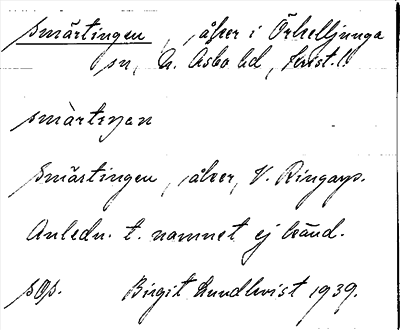 Smärtingen, åker i Örkelljunga
sn, N. Åsbo hd, Krist. l.
smärtiŋən
Smärtingen, åker, V. Ringarp.
Anledn. t. namnet ej känd.
sop. Birgit Lundkvist 1939.